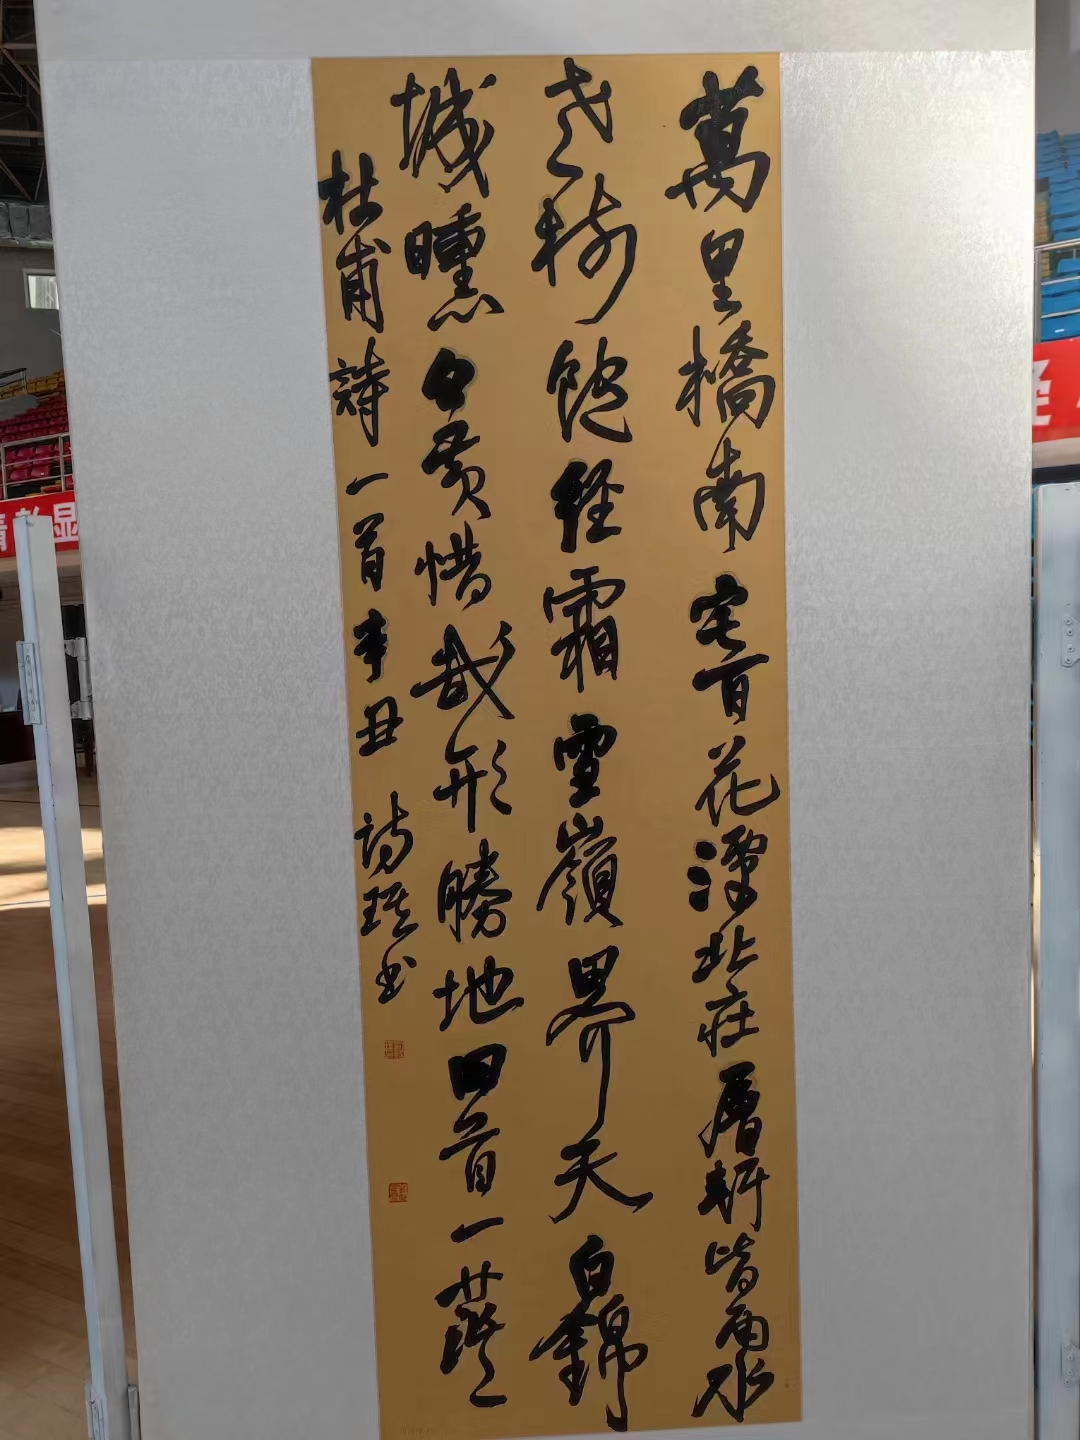 萬里橋南宅百花潭北庄層軒皆面水
老樹飽經霜雪嶺界天白錦
城曛日黄惜哉形勝地回首一茫々
杜甫詩一首辛丑 詩琪书